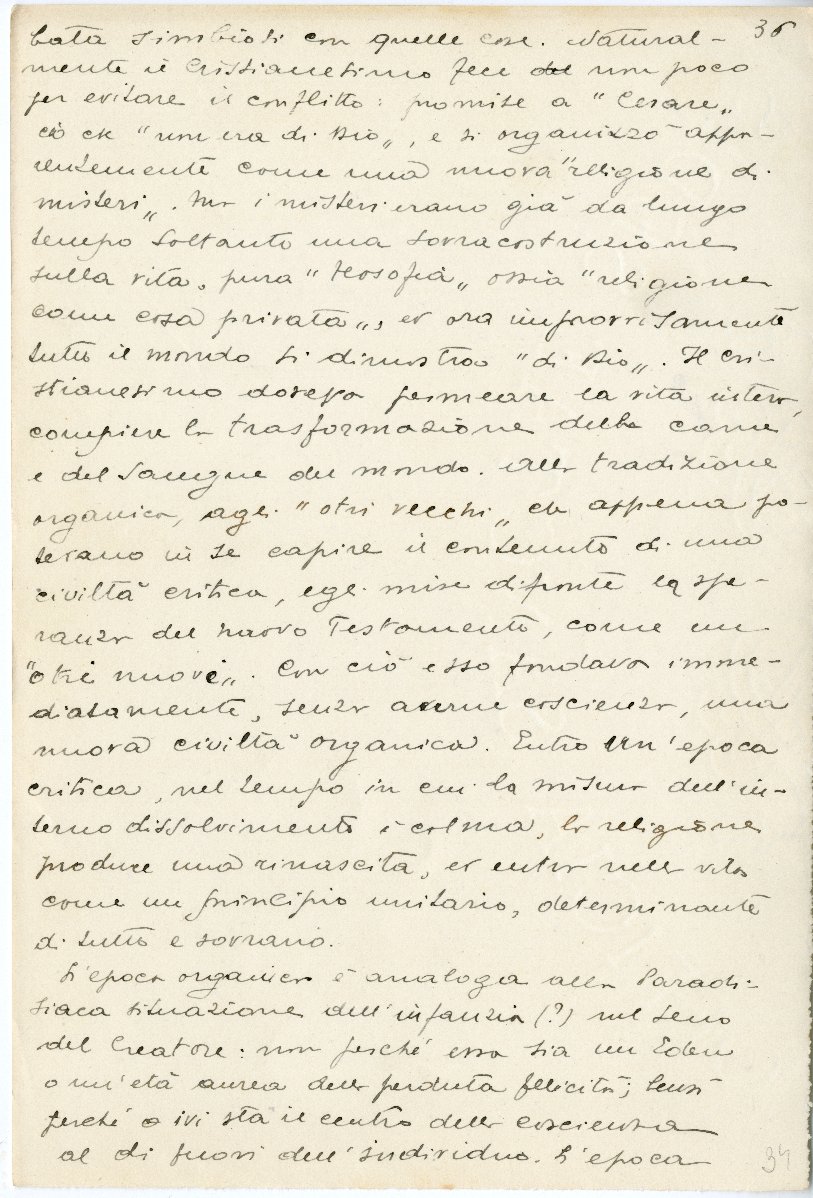 36
bata simbiosi con quelle cose. Natural-
mente il Cristianesimo fece del non poco
per evitare il conflitto: promise a "Cesare„
ciò che "non era di Dio„, e si organizzò appa-
rentemente come una nuova "religione di
misteri„. Ma i misteri erano già da lungo
tempo soltanto una sovracostruzione
sulla vita, pura "teosofia„ ossia "religione
come cosa privata„, ed ora improvvisamente
tutto il mondo si dimostrò "di Dio„. Il Cri-
stianesimo doveva permeare la vita intera,
compiere la trasformazione della carne
e del sangue del mondo. Alla tradizione
organica, agli "otri vecchi„ che appena po-
tevano in se capire il contenuto di una
civiltà critica, egli mise difronte la spe-
ranza del Nuovo Testamento, come un
"otri nuovi„. Con ciò esso fondava imme-
diatamente, senza averne coscienza, una
nuova civiltà organica. Entro un'epoca
critica, nel tempo in cui la misura dell'in-
terno dissolvimento è colma, la religione
produce una rinascita, ed entra nella vita
come un principio unitario, determinante
di tutto e sovrano.
L'epoca organica è analoga alla Paradi-
siaca situazione dell'infanzia (?) nel seno
del Creatore: non perché essa sia un Eden
o un'età aurea della perduta felicità; bensì
perché ivi sta il centro della coscienza
al di fuori dell'individuo. L'epoca
34